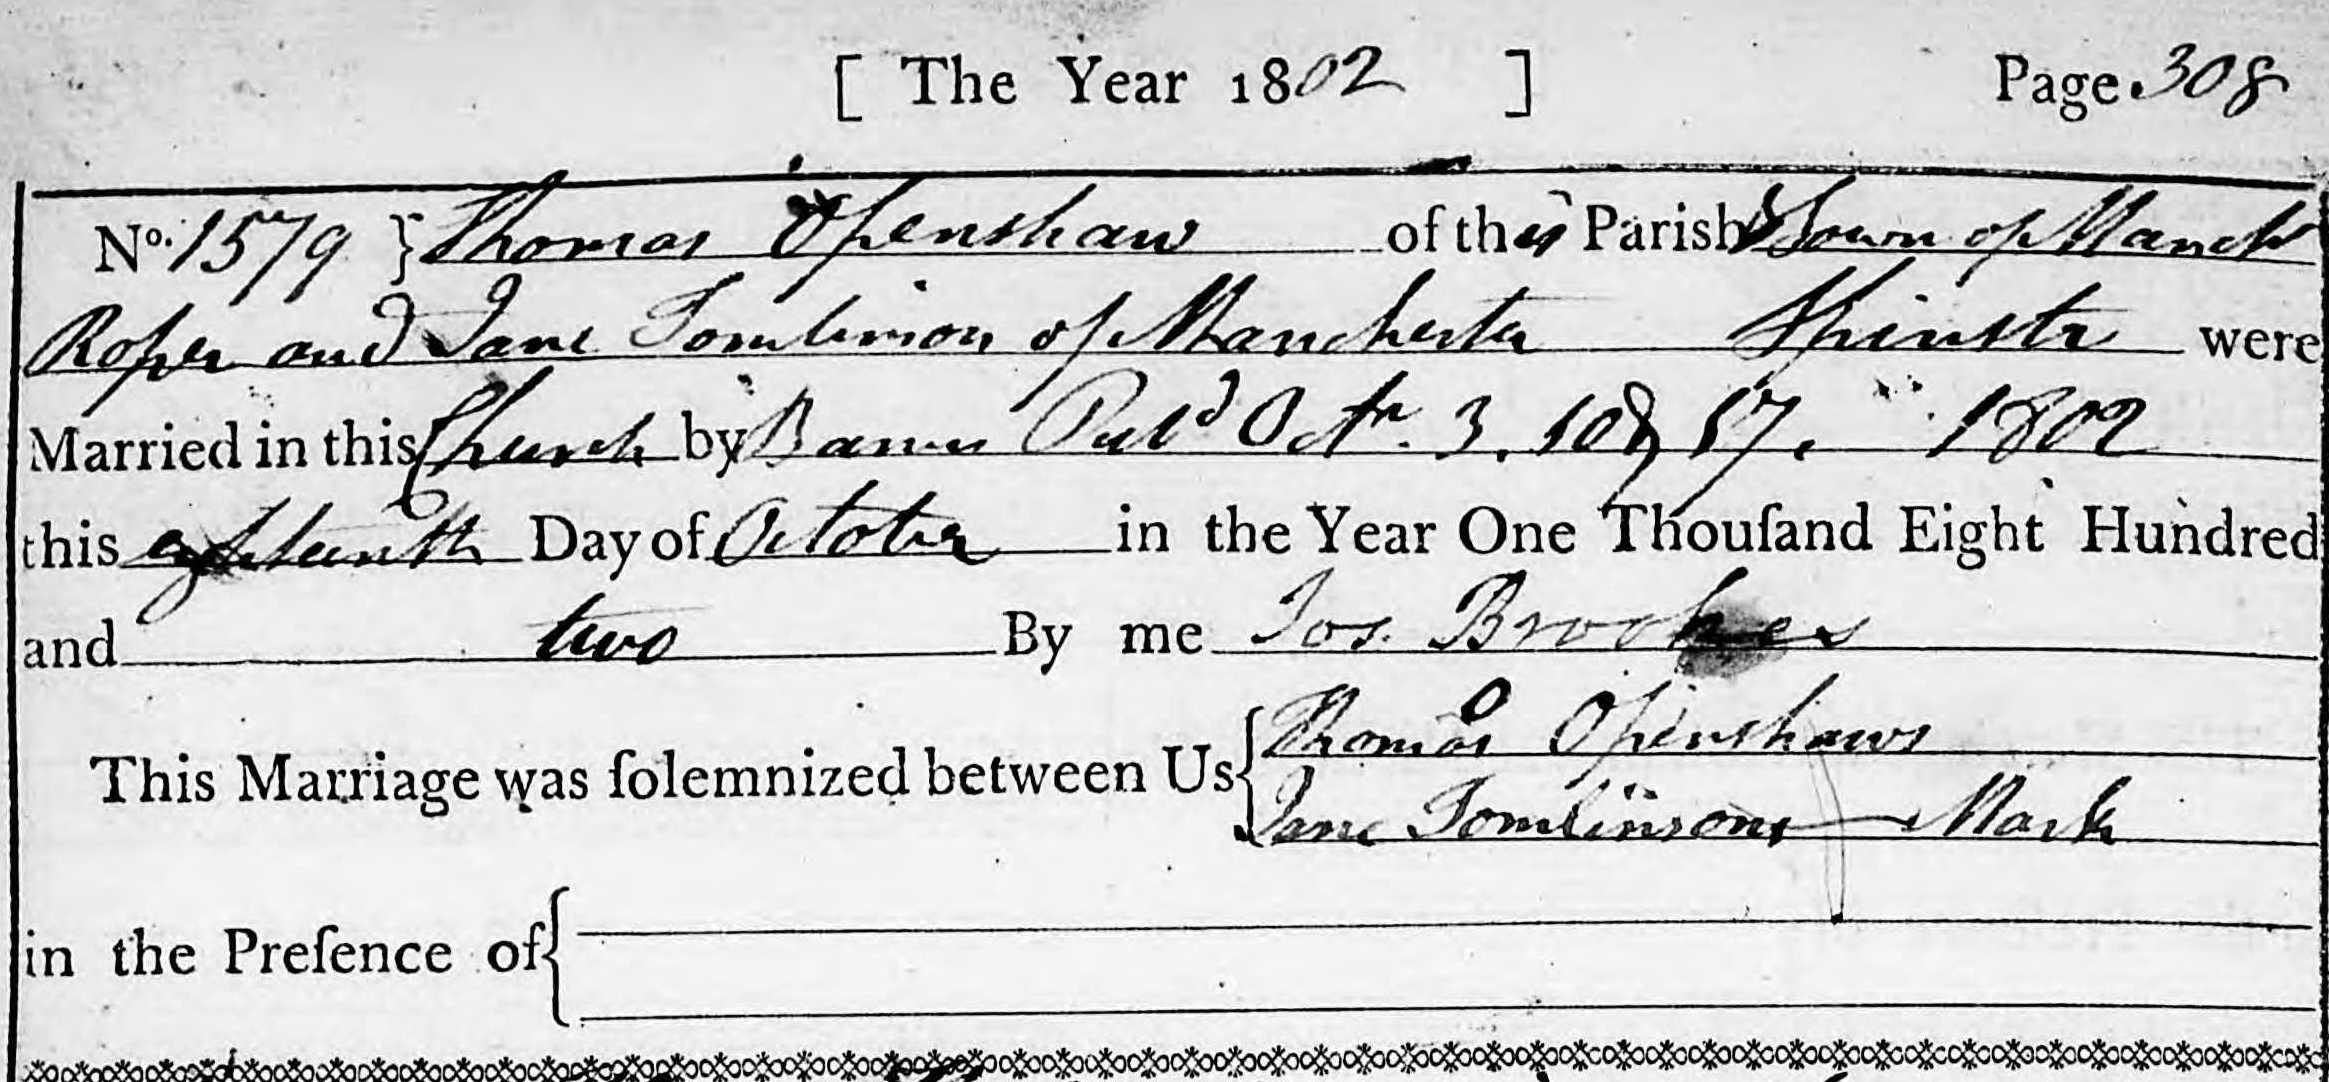 [ The Year 1802 ] Page 308
No. 1579 } Thomas Openshaw of this Parish & Town of Manchr
Roper and Jane Tomlinson of Manchester Spinstr were
Married in this Church by Banns Pubd Octr. 3. 10 & 17. 1802
this eighteenth Day of October in the Year One Thouſand Eight Hundred
and two By me Jos. Brookes
This Marriage was ſolemnized between Us { Thomas Openshaws
Jane Tomlinsons Mark
in the Preſence of {